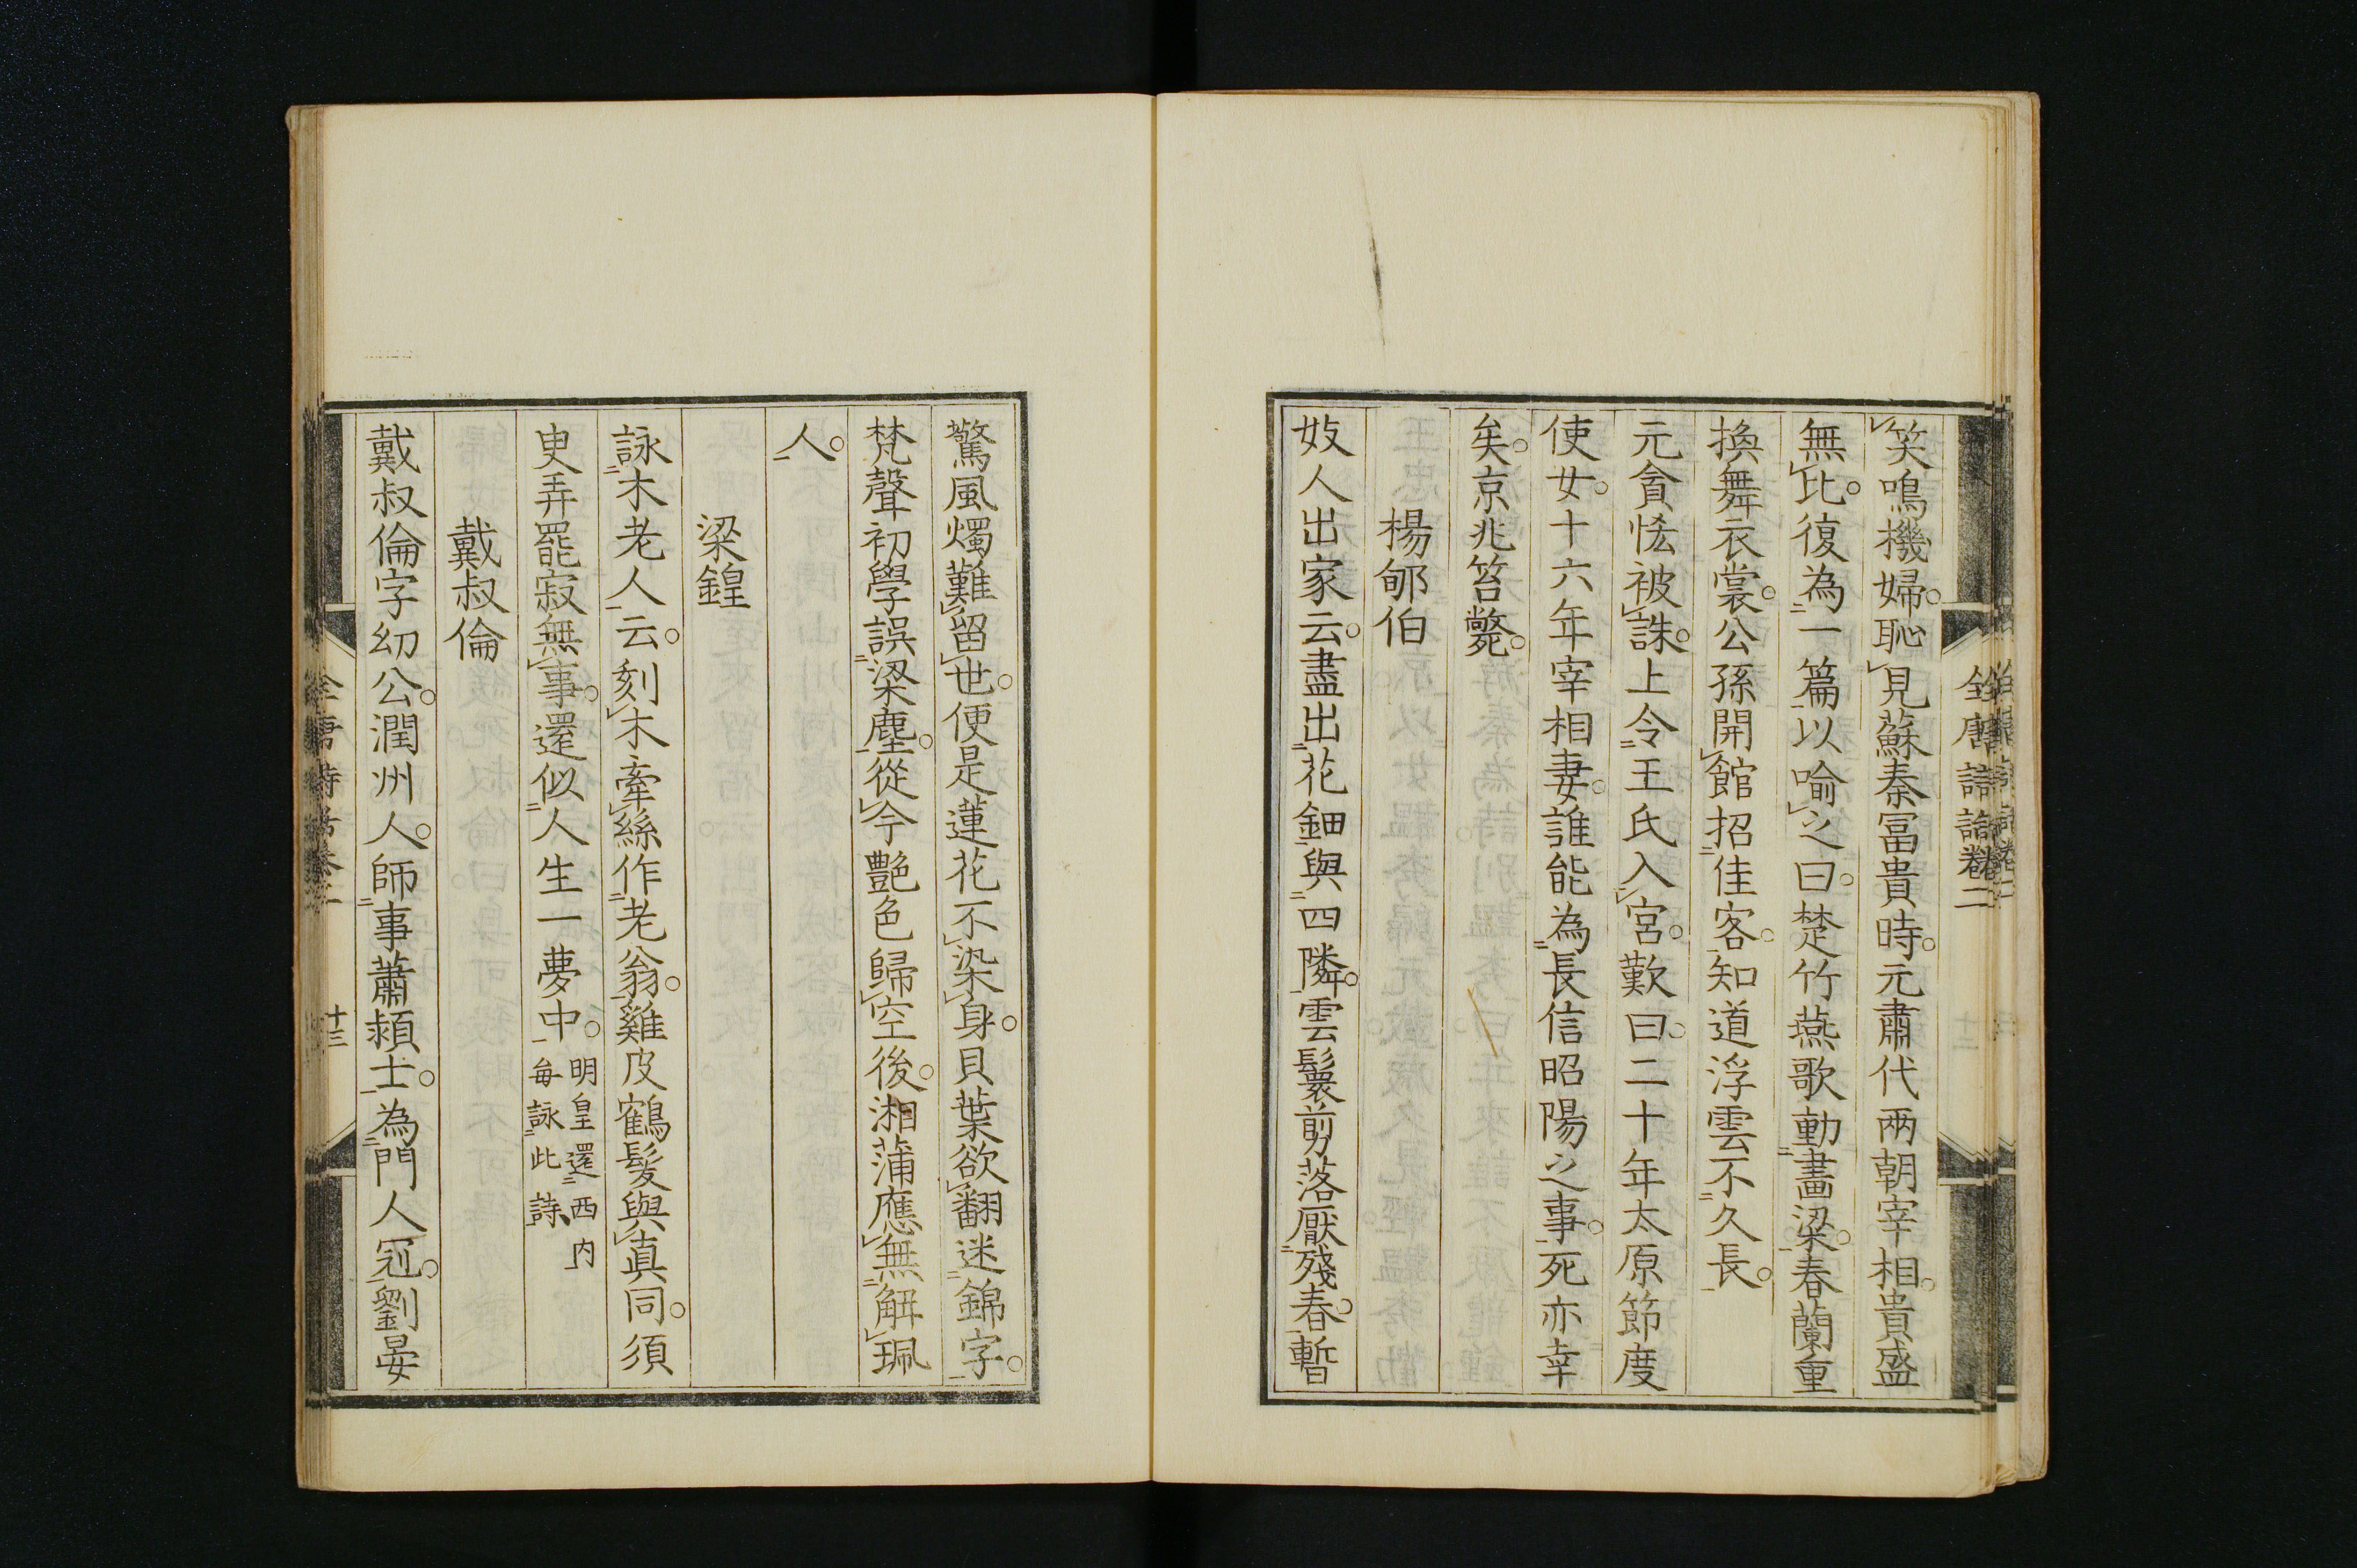 笑鳴機婦。恥見蘇秦冨貴時。元肅代两朝宰相。貴盛
無比。復為一篇以喻之曰。楚竹燕歌動畫梁。春蘭重
換舞衣裳。公孫開館招佳客。知道浮雲不久長。
元貪恡被誅。上令王氏入宮。歎曰。二十年太原節度
使女。十六年宰相妻。誰能為長信昭陽之事。死亦幸
矣。京兆笞斃。
楊郇伯
妓人出家云。盡出花鈿與四隣。雲鬟剪落厭殘春。暫
全唐詩話卷二
驚風燭難留世。便是蓮花不染身。貝葉欲翻迷錦字。
梵聲初學誤梁塵。從今艶色歸空後。湘蒲應無觧珮
人。
梁鍠
詠木老人云。刻木牽絲作老翁。雞皮鶴髮與真同。須
臾弄罷寂無事。還似人生一夢中。
明皇還西内
每詠此詩
戴叔倫
戴叔倫字幼公。潤州人。師事蕭頴士。為門人冠。劉晏
全唐詩話卷二
十三